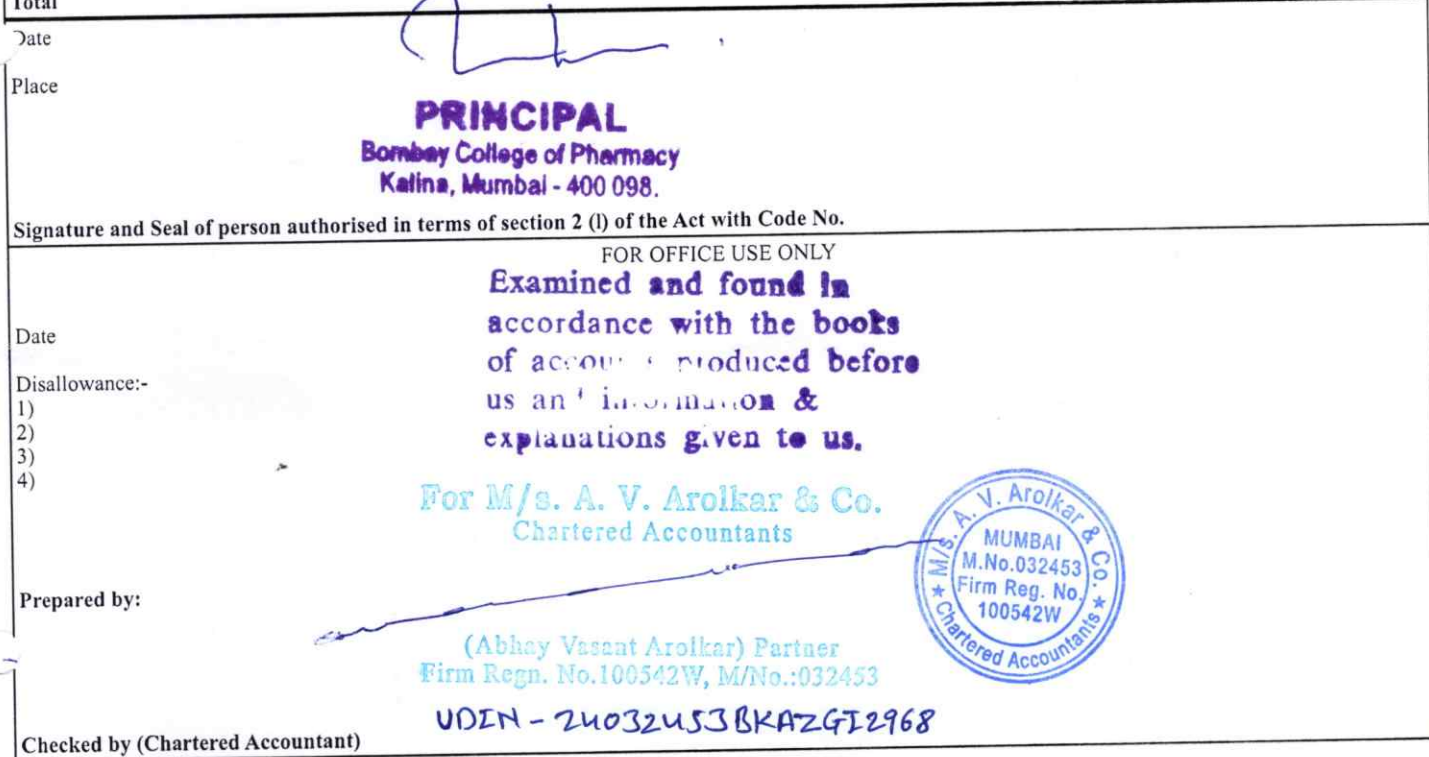 Total
Date
Place
PRINCIPAL
Bombay College of Pharmacy
Kalina, Mumbai - 400 098.
Signature and Seal of person authorised in terms of section 2 (l) of the Act with Code No.
FOR OFFICE USE ONLY
Examined and found in
accordance with the books
of produced before
us &
explanations given to us.
Date
Disallowance:-
1)
2)
3)
4)
For M/s. A. V. Arolkar & Co.
Chartered Accountants
M/s. A. V. Arolkar & Co.
MUMBAI
M.No.032453
Firm Reg. No.
100542W
★ Chartered Accountants ★
Prepared by:
(Abhay Vasant Arolkar) Partner
Firm Regn. No.100542W, M/No.:032453
UDIN - 24032453BKAZGI2968
Checked by (Chartered Accountant)